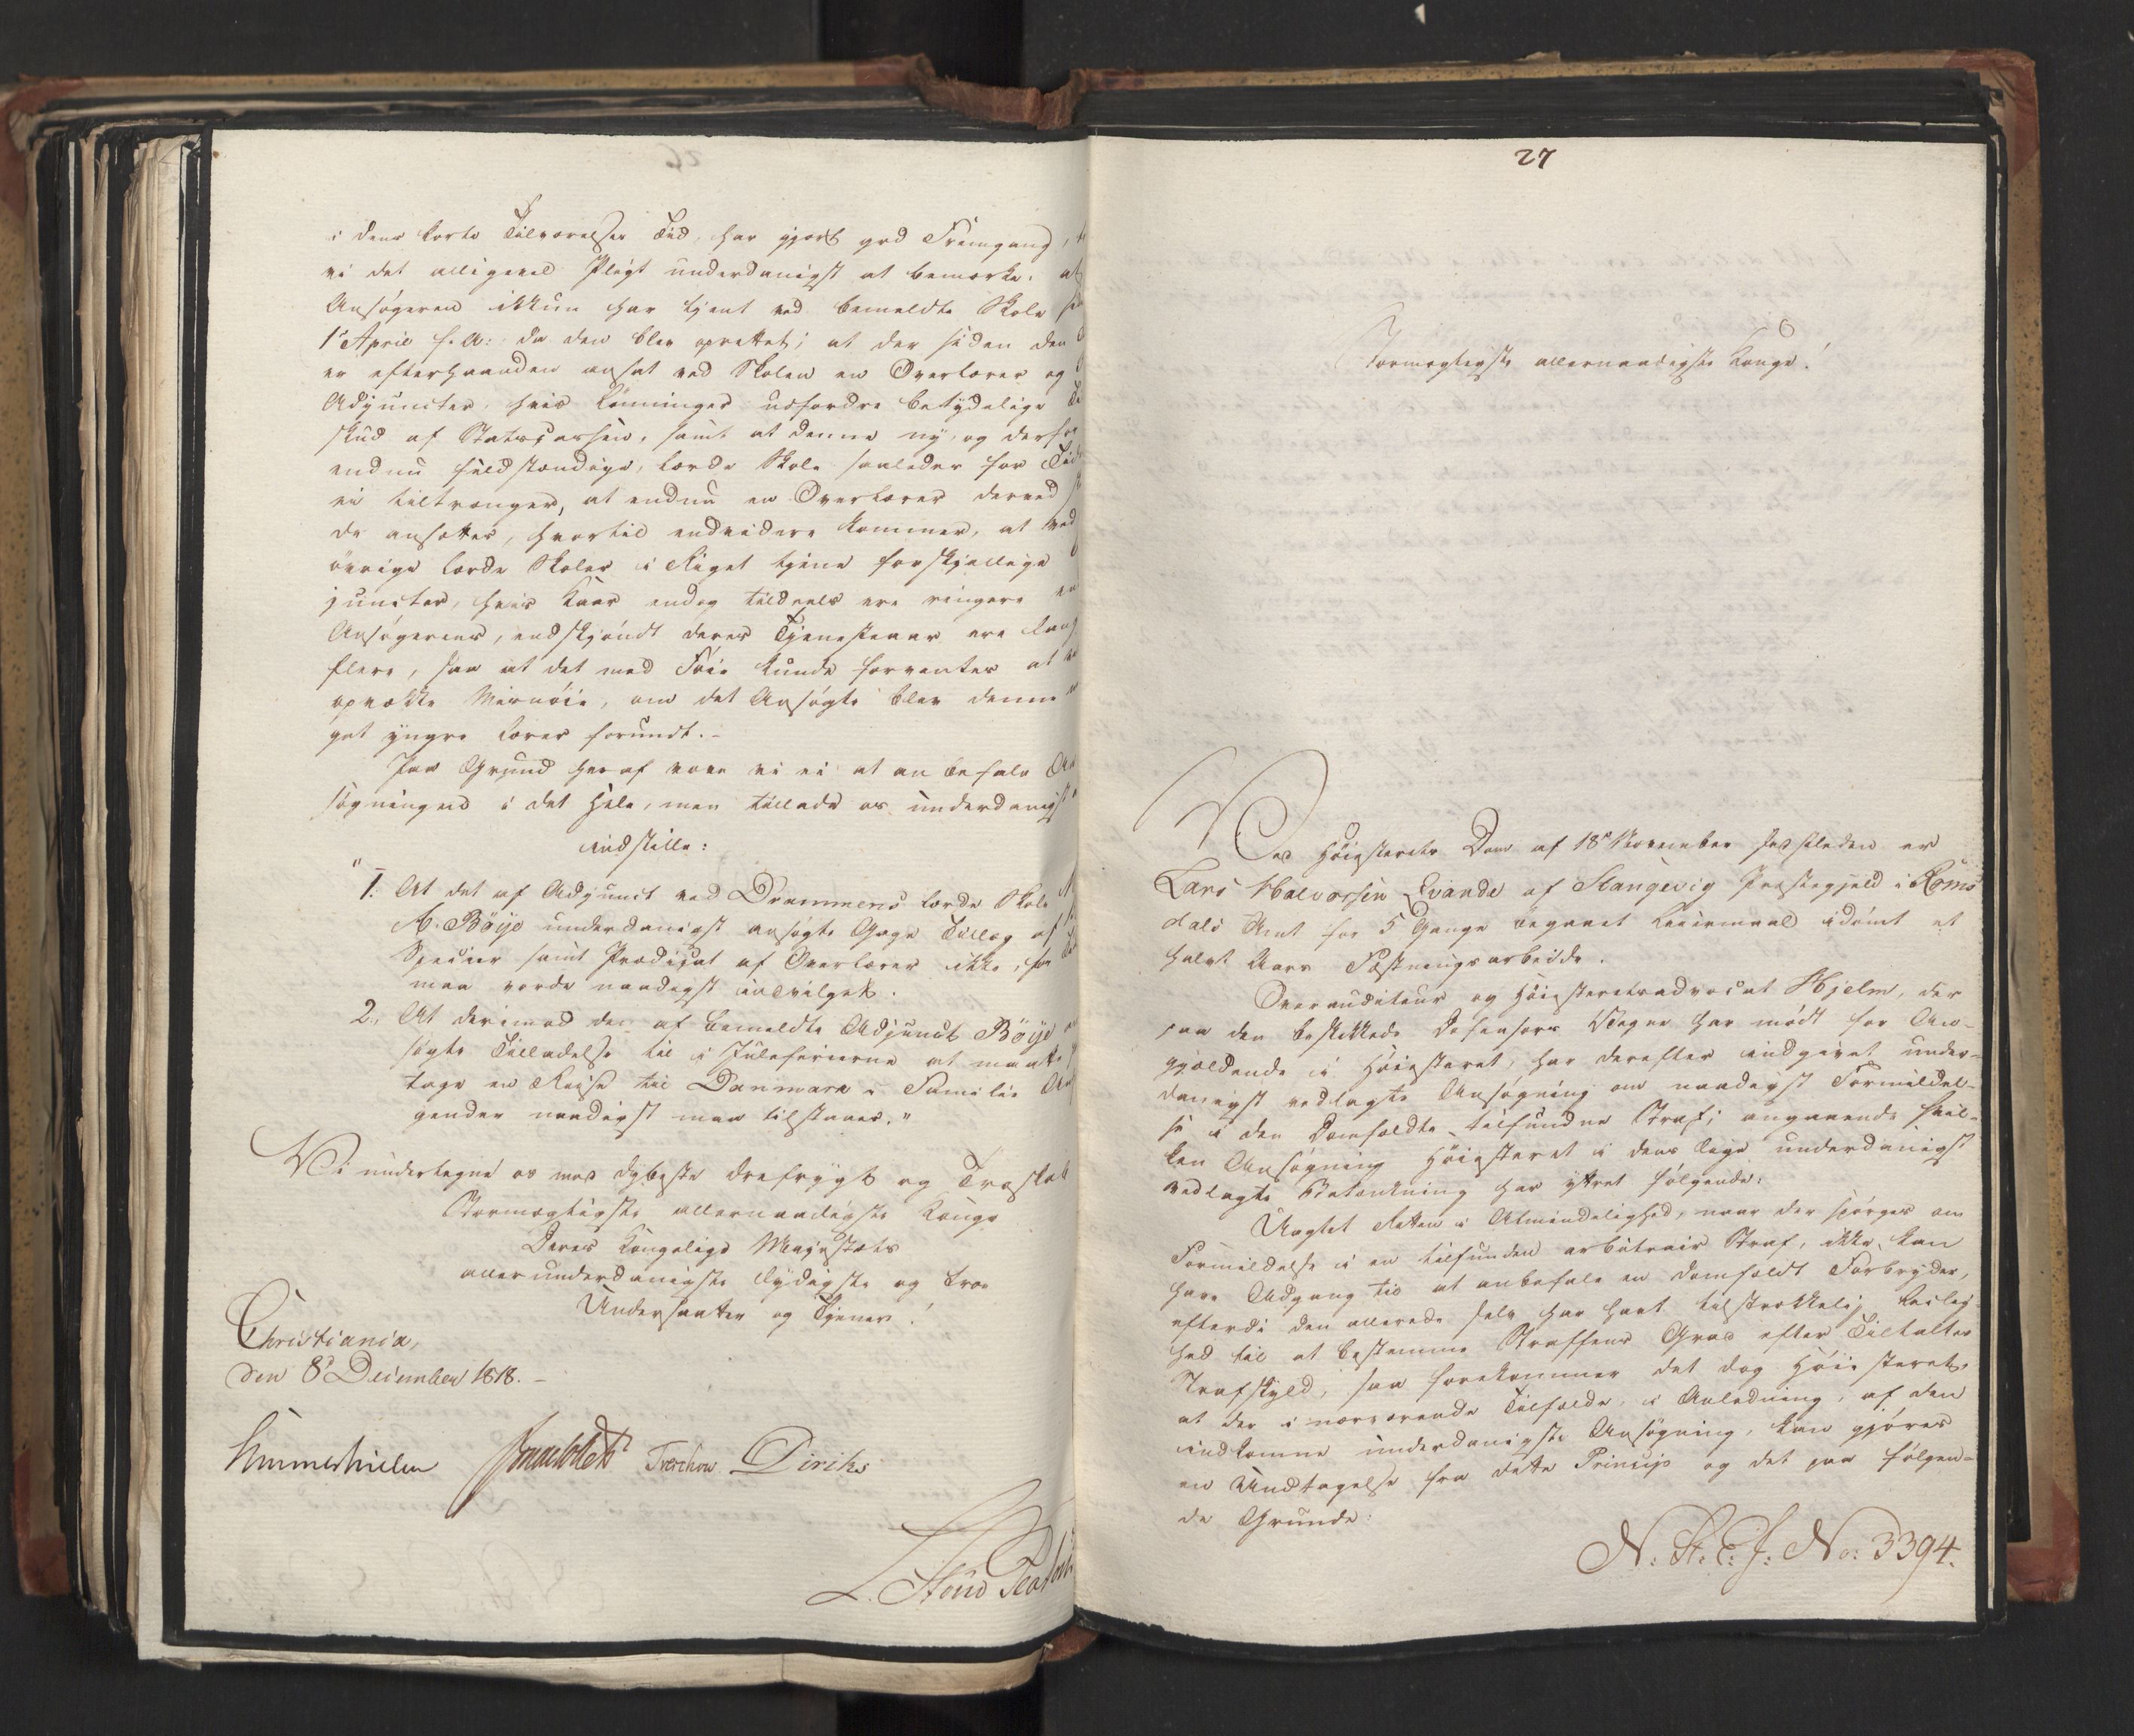 i dens korte Tilværelses Tid, har gjort god Fremgang,
vi det alligevel Pligt underdanigst at bemærke: at
Ansøgeren ikkun har tjent ved bemeldte Skole
1ste April f. A: da den blev oprettet; at der siden den
er efterhaanden ansat ved Skolen en Overlærer og
Adjuncter, hvis Lønninger udfordre betydelige
skud af Statscassen, samt at denne ny, og derfor
endnu fuldstændige, lærde Skole saaledes for
ei tiltrænger, at endnu en Overlærer derved
de ansættes, hvortil endvidere kommer, at ved
øvrige lærde Skoler i Riget tjene forskjellige
juncter, hvis Kaar endog tildeels ere ringere
Ansøgerens, endskjøndt deres Tjenesteaar ere langt
flere, saa at det med Føie kunde forventes at
opvække Misnøie, om det Ansøgte blev denne
get yngre Lærer forundt.-
Paa Grund heraf vove vi ei at anbefale An
søgningen i det Hele, men tillade os underdanigst
indstille:
"1. At det af Adjunct ved Drammens lærde Skole
A. Böije underdanigst ansøgte Gage Tillæg af
Specier samt Prædicat af Overlærer ikke, for
maa vorde naadigst indvilget.
2., At derimod den af bemeldte Adjunct Böije
søgte Tilladelse til i Juleferierne at maatte
tage en Reise til Danmark i Familie An
gender naadigst maa tilstaaes."
Vi undertegne os med dybeste Ærefrygt og Troskab
Stormægtigste allernaadigste Konge
Deres Kongelige Majestæts
allerunderdanigste lydigste og troe
Undersaatter og Tjener!
Christiania,
den 8de December 1818.-
Hummerhielm Treschow Diriks
L. Stoud Platou
27
Stormægtigste allernaadigste Konge!
Ved Høiesterets Dom af 18de November sidstleden er
Lars Halvorsen Qvande af Stangevig Præstegjeld i Roms
dals Amt for 5 Gange begaaet Leiermaal idømt et
halvt Aars Fæstningsarbeide.
Overauditeur og Høiesteretsadvocat Hjelm, der
paa den beskikkede Defensors Vegne har mødt for An-
gjældende i Høiesteret, har derefter indgivet under-
danigst vedlagte Ansøgning om naadigst Formildel-
se i den Domfældte tilfundne Straf; angaaende hvil-
ken Ansøgning Høiesteret i dens lige underdanigst
vedlagte Betænkning har yttret følgende:
Uagtet Retten i Almindelighed, naar der spørges om
Formildelse i en tilfunden arbitrair Straf, ikke kan
have Adgang til at anbefale en domfældt Forbryder,
efterdi den allerede selv har havt tilstrækkelig Leilig-
hed til at bestemme Straffens Grad efter Tiltaltes
Strafskyld, saa forekommer det dog Høiesteret,
at der i nærværende Tilfælde, i Anledning, af den
indkomne underdanigste Ansøgning, kan gjøres
en Undtagelse fra dette Princip og det paa følgen-
de Grunde:
N: St. C: J: No: 3394.